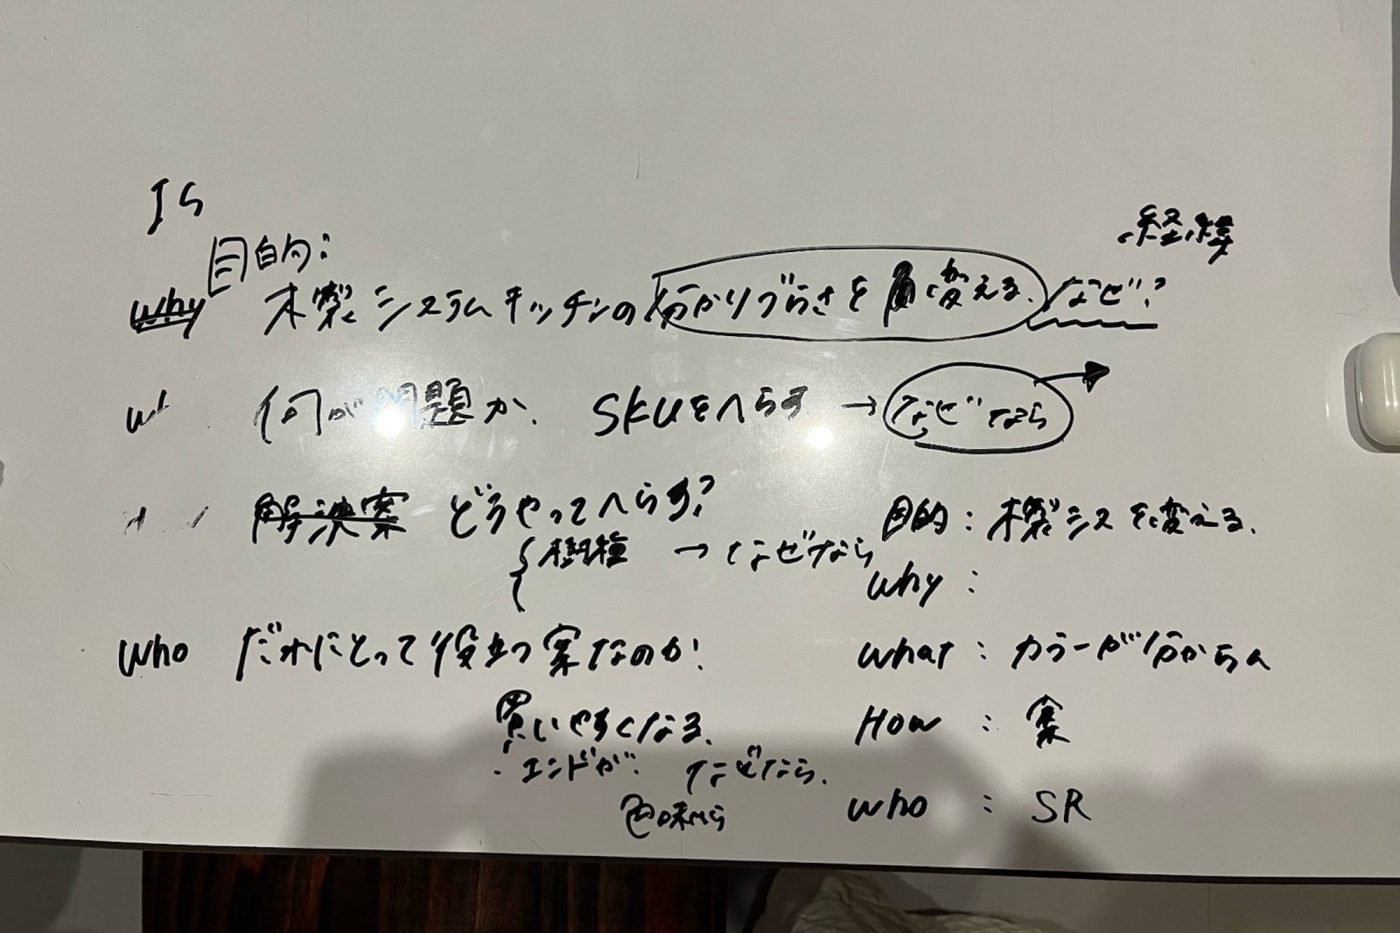 IS
目的:
経緯
why 木製システムキッチンの分かりづらさを変える. なぜ?
何が問題か. SKUをへらす → なぜなら
解決案 どうやってへらす?
樹種 → なぜなら
目的: 木製シスを変える.
why :
who だれにとって役立つ案なのか?
what : カラーが分からん
買いやすくなる.
How : 案
・エンドが なぜなら.
who : SR